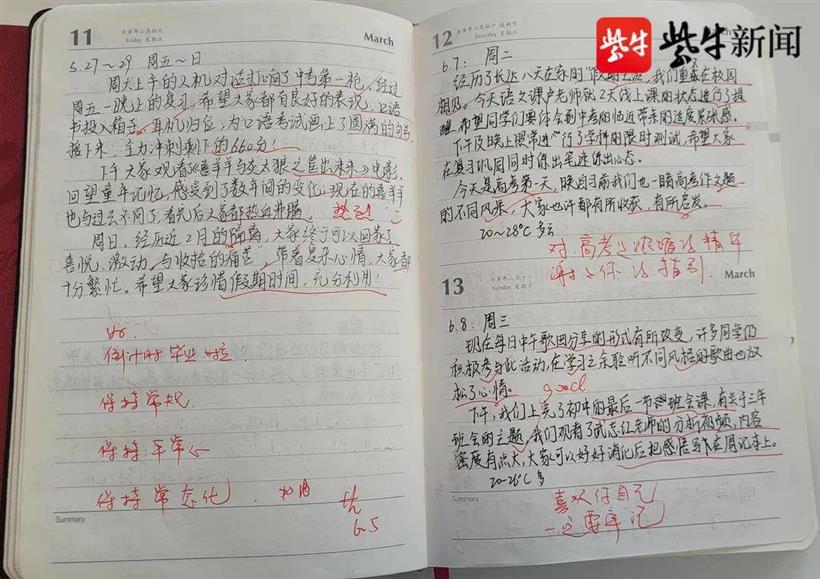 11
壬寅年二月初九
Friday 星期五
March
5.27~29 周五~日
周六上午的人机对话打响了中考第一枪，经过
周五一晚上的复习，希望大家都有良好的表现。口语
书投入箱子，耳机归位，为口语考试画上了圆满的句号
接下来，全力冲刺剩下的660分！
下午大家观看《喜羊羊与灰太狼之筐出未来》电影，
回望童年记忆，感受到了数年间的变化。现在的喜羊羊
也与过去不同了，看完后大家都热血沸腾。
周日，经历近2月的隔离，大家终于可以回家了
喜悦、激动、与收拾的痛苦，带着复杂心情，大家都
十分繁忙。希望大家珍惜假期时间，充分利用！
倒计时毕业时
保持常规
保持平常心
保持常态化
6.5
Summary
12
壬寅年二月初十 植树节
Saturday 星期六
March
紫牛新闻
6.7： 周二
经历了长达八天在家的“假期”生活，我们重聚在校园
期间。今天语文课卢老师就2天线上课的状态进行了提
醒，希望同学们要体会到中考的临近带来的速度紧迫感。
下午及晚上照常进行了学科的限时测试，希望大家
在复习巩固同时练出笔速练出心态。
今天是高考第一天，晚自习前我们也一睹高考作文题
的不同风采，大家也许都有所收获，有所启发。
20~28°C 多云
对高考之浓缩的精华
谢谢你的指引
13
壬寅年二月十一
Sunday 星期日
March
6.8： 周三
现在每日中午歌曲分享的形式有所改变，许多同学仍
积极参与此活动，在学习之余聆听不同风格的歌曲也放
松了心情。
good
下午，我们上完了初中的最后一节班会课，有关于三年
班会的主题，我们观看了武志红老师的分析视频，内容
密度有点大，大家可以好好消化后把感悟写下在周记本上。
20~26°C 多
喜欢仔
Summary